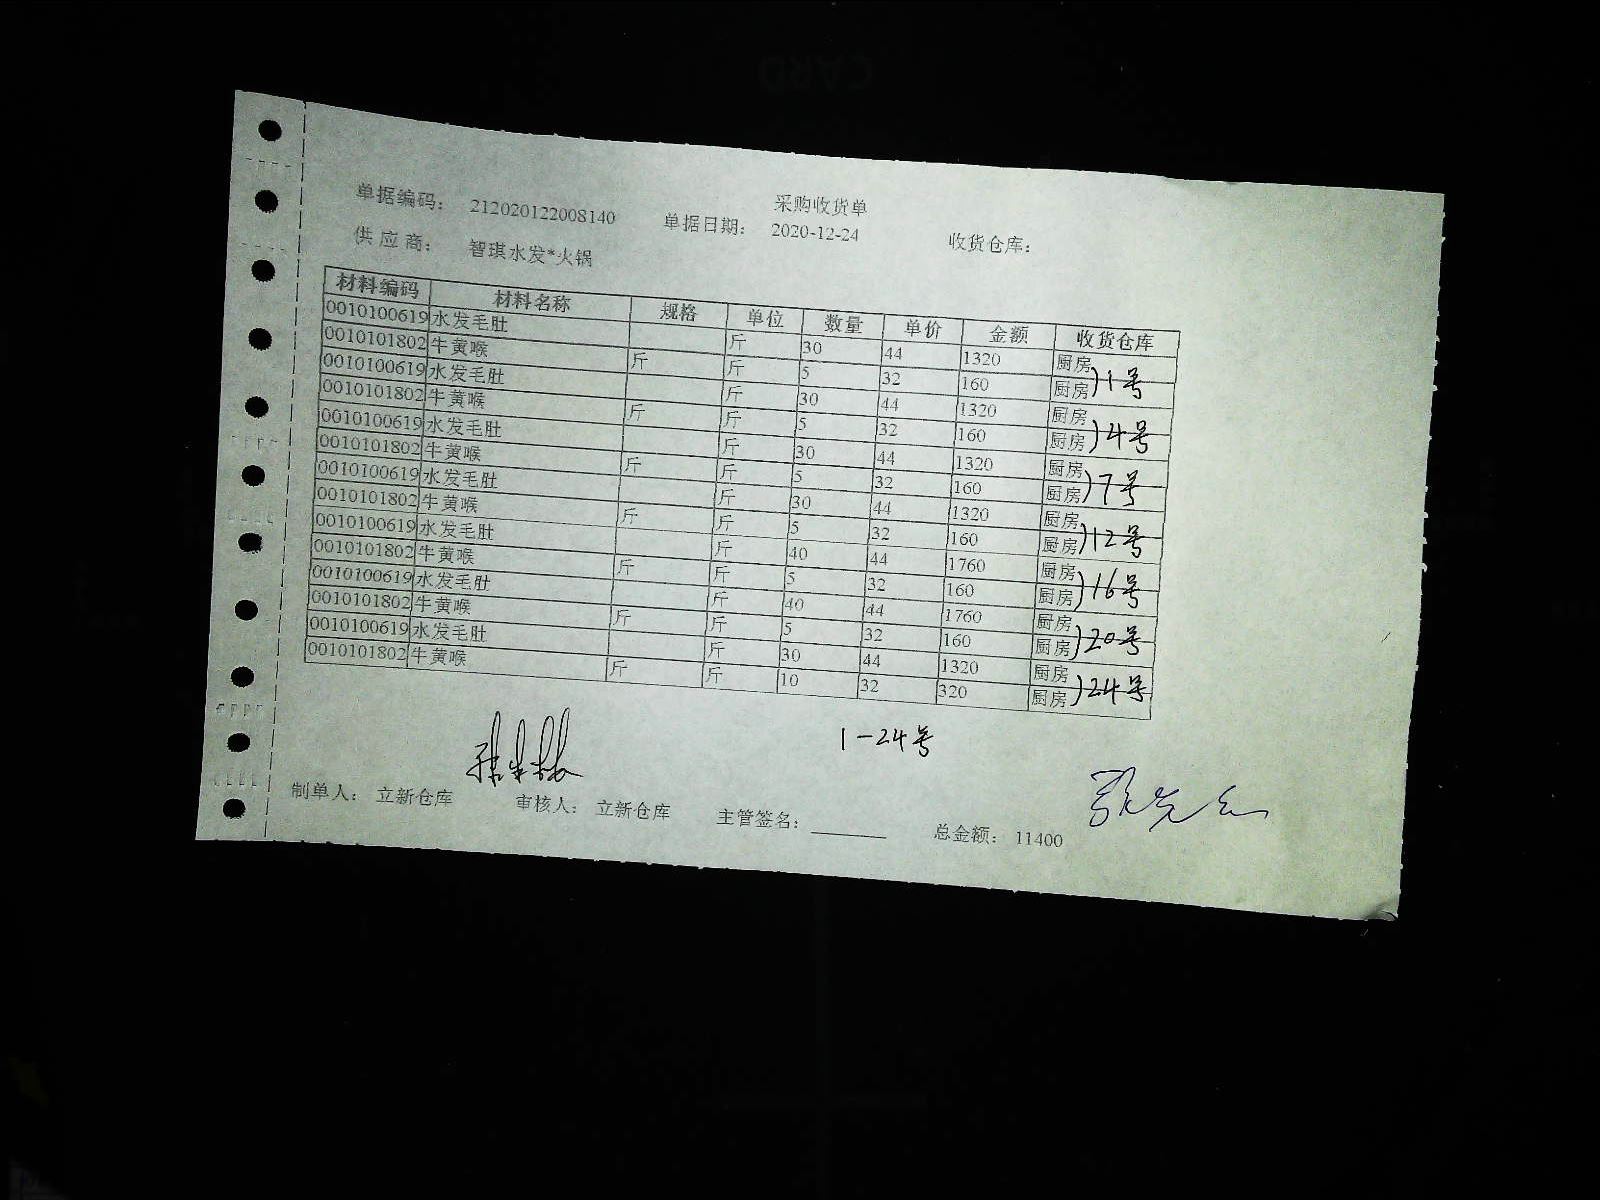 采购收货单
单据编码： 212020122008140 单据日期： 2020-12-24 收货仓库：
供应商： 智琪水发*火锅
材料编码 材料名称 规格 单位 数量 单价 金额 收货仓库
0010100619 水发毛肚 斤 30 44 1320 厨房
0010101802 牛黄喉 斤 斤 5 32 160 厨房 )1号
0010100619 水发毛肚 斤 30 44 1320 厨房
0010101802 牛黄喉 斤 斤 5 32 160 厨房 )4号
0010100619 水发毛肚 斤 30 44 1320 厨房
0010101802 牛黄喉 斤 斤 5 32 160 厨房 )7号
0010100619 水发毛肚 斤 30 44 1320 厨房
0010101802 牛黄喉 斤 斤 5 32 160 厨房 )12号
0010100619 水发毛肚 斤 40 44 1760 厨房
0010101802 牛黄喉 斤 斤 5 32 160 厨房 )16号
0010100619 水发毛肚 斤 40 44 1760 厨房
0010101802 牛黄喉 斤 斤 5 32 160 厨房 )20号
0010100619 水发毛肚 斤 30 44 1320 厨房
0010101802 牛黄喉 斤 斤 10 32 320 厨房 )24号
1-24号
制单人： 立新仓库 审核人： 立新仓库 主管签名： 总金额： 11400